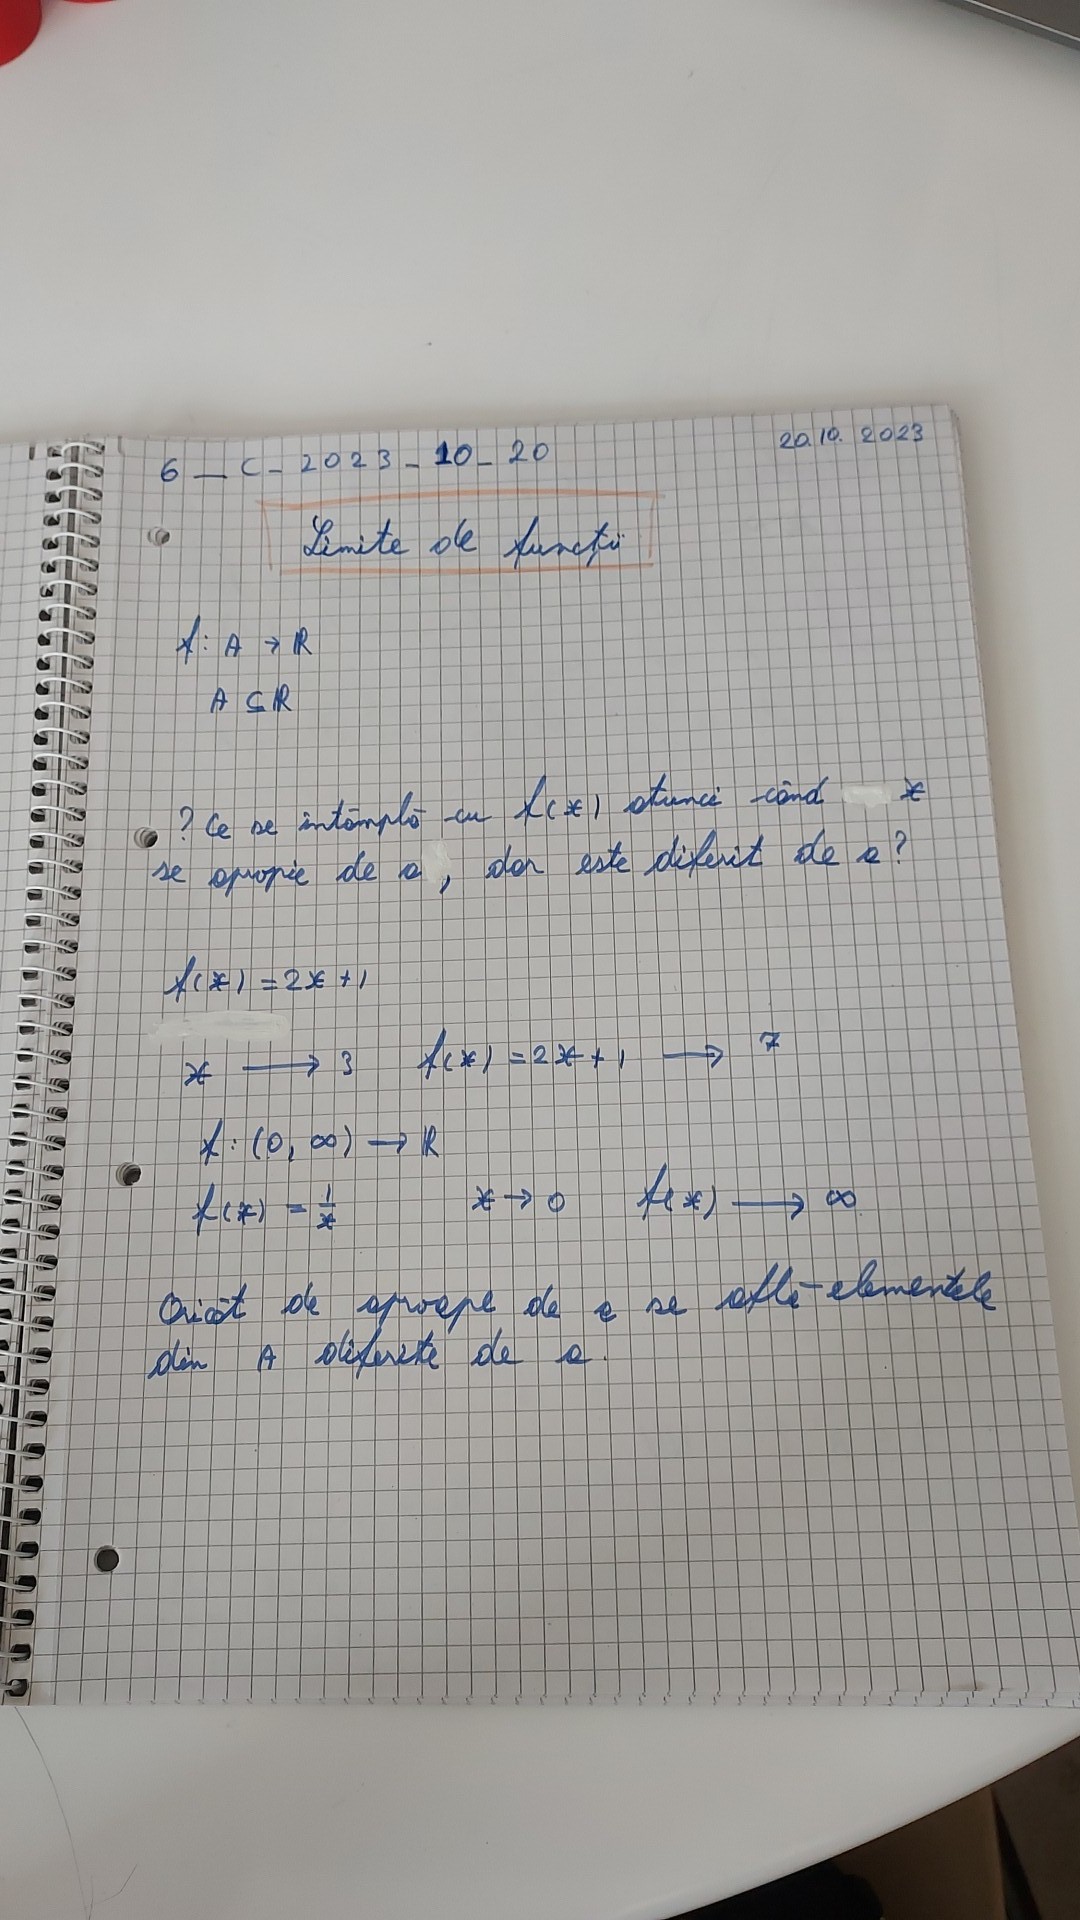 6 _ C - 2023 - 10 - 20
20.10. 2023
Limite de funcții
f: A → R
A ⊆ R
? Ce se întâmplă cu f(x) atunci când x
se apropie de a, dar este diferit de a?
f(x) = 2x + 1
x → 3 f(x) = 2x + 1 → 7
f: (0, ∞) → R
f(x) = 1/x x → 0 f(x) → ∞
Oricât de aproape de a se află elementele
din A diferite de a.